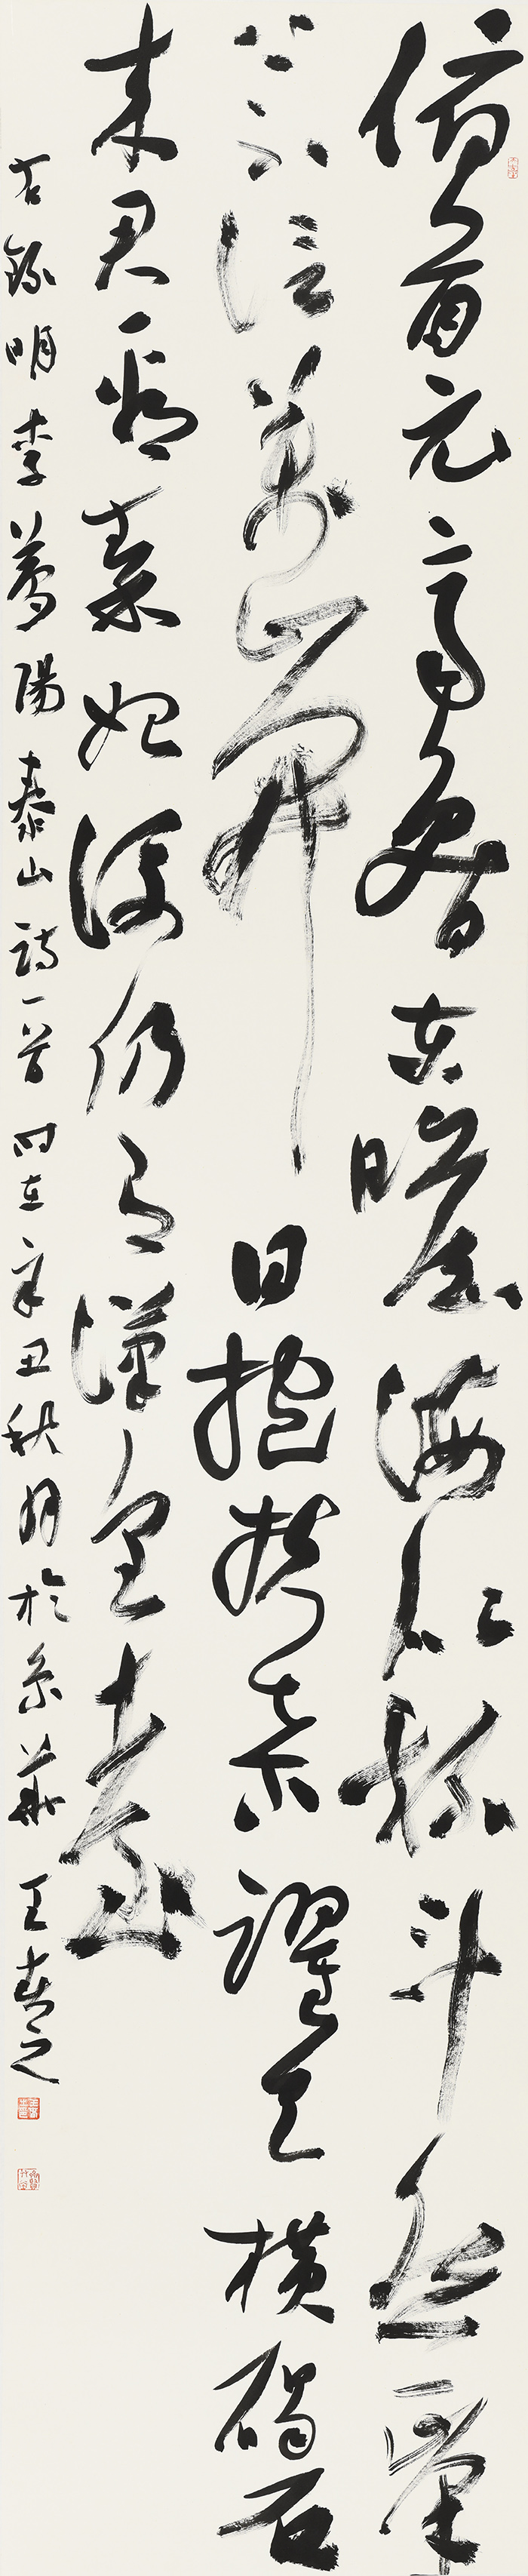 俯首无齊魯東瞻海似杯斗然一峯
上不信萬山開日抱扶桑躍天橫碣石
来君看秦始後仍有漢皇臺
右錄明李夢陽泰山詩一首時在辛丑秋月於京華王之